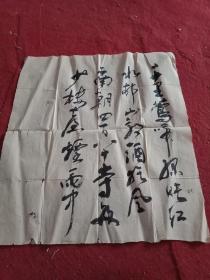 千里鶯啼绿映红
水邨山郭酒旗风
南朝四百八十寺多
少楼臺煙雨中